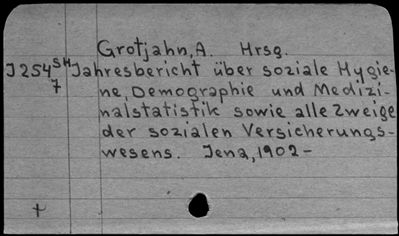 Grotjahn, A. Hrsg.
J254 SH 7 Jahresbericht über soziale Hygie-
ne, Demographie und Medizi-
nalstatistik sowie alle Zweige
der sozialen Versicherungs-
wesens. Jena, 1902-
+